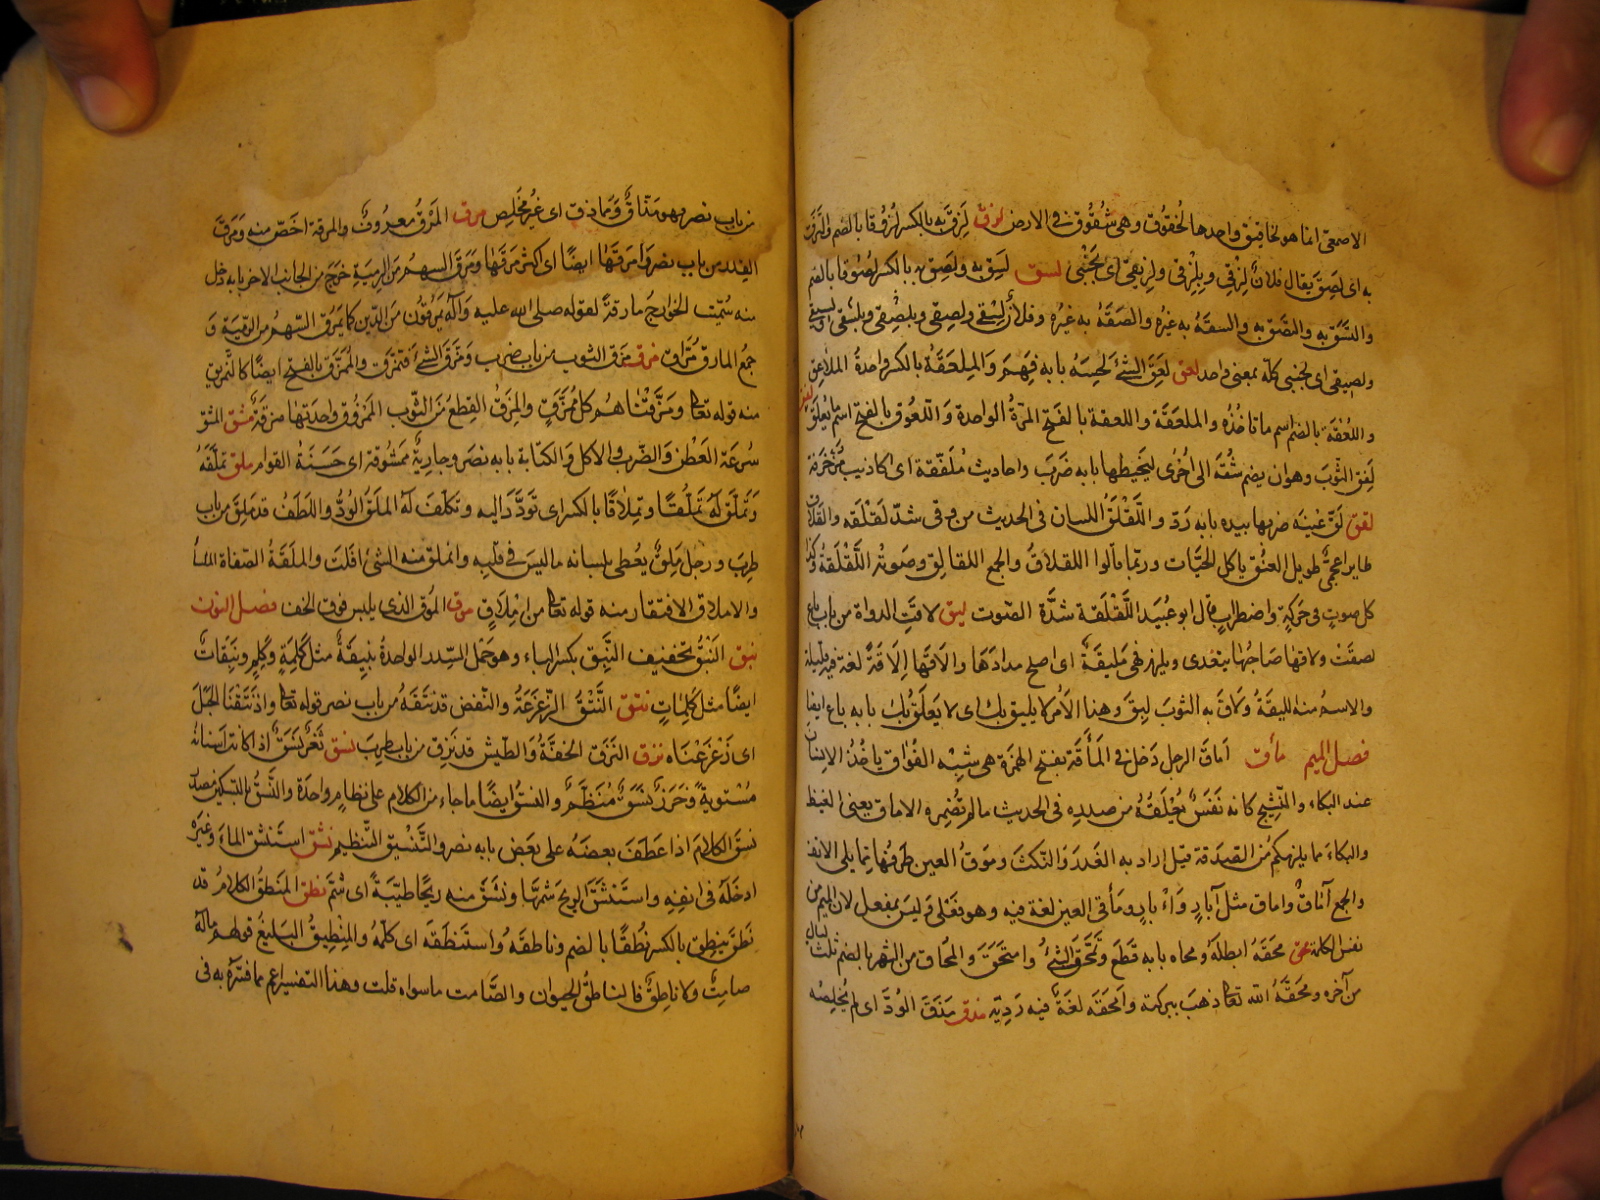 الاصمعى انما هو لخاقيق واحدها لُخقُوق وهى شُقُوق فى الارض لزق لَزِقَ به بالكسر لُزُوقا بالضم والتَزَق
به اى لَصِقَ يقال فلانٌ لِزْقى وبِلِزْقى ولزيقى اى بِجَنْبى لسق لَسِقَ به ولَصِق به بالكسر لُصُوقا بالضم
والتَسَق به والتَصَق به والسقَهُ به غيرُه والصَقَهُ به غيرُه وفلانٌ لِسْقى ولِصْقى وبلِصْقى وبلِسْقى ولسيقى
ولصيقى اى بجنبى كلّه بمعنى واحد لعق لَعِقَ الشئَ لَحِسَهُ بابه فَهِمَ وَالمِلعَقَةُ بالكسر واحدةُ الملاعِق
واللُعْقَة بالضم اسم ما تاخُذُه والملعَقَة واللعقة بالفَتح المرّةُ الواحدة وَاللَعُوق بالفتح اسم ما يُعلَق
لَفَق الثَوبَ وهو ان يضم شُقَّة الى اُخرى ليَخيطها بابه ضَرَبَ واحاديث مُلَفَّقة اى اكاذيب مُزَخرَفة
لقق لَقَّ عَينَه ضربها بيده بابه رَدّ واللَّقْلَقُ اللسان فى الحديث من وقى شرّ لَقلَقه واللقلاق
طاير اعجمىّ طويل العنُق ياكل الحيَّات وربّما قالوا اللقلاقُ والجمع اللقالِق وصَوتُه اللَّقْلَقةُ وكذا
كل صوتٍ فى حَرَكةٍ واضطرابٍ قال ابو عُبَيد اللَّقلَقة شدَّة الصّوت ليق لاقَتِ الدواة من باب باع
لصقَتْ ولاقها صَاحِبُها يتعَدى ويلزم فهى مَليقَةٌ اى اصلح مدادَها والَاقَها اِلَاقَةً لغة فيه قليلة
والاسمُ منه الليقَةُ ولَاقَ به الثوبَ لبِقَ وهذا الاَمرُ لا يليق بك اى لا يَعلَقُ بك بابه باع ايضا
فصل الميم مأق اَماقَ الرجل دَخل فى المَأَقَة بفتح الهمزة هى شِبْه الفُوَاق ياخُذُ الانسان
عند البكاء والنّشيج كانه نَفَسٌ يُخلعُهُ من صدره فى الحديث ما لم تُضمِره الاماق يعنى الغيظ
والبكاءَ مما يلزمكم من الصَّدقة قيل اراد به الغَدرَ والنّكثَ ومَوقُ العين طَرفُها مِمّا يلى الانف
والجمع آمَاقٌ واماق مثل آبارٍ واَبْآرٍ ومَأقى العين لغة فيه وهو فَعْلى وَليسَ بمفعل لان الميم من
نفس الكلمة محق محَقَهُ ابطَلَهُ ومحاه بابه قَطَع وتَمَحَّق الشئُ وامتَحَقَ والمُحَاق من الشهر بالضم ثلث ليال
من آخره ومحقَهُ الله تعا ذهَبَ ببركته وامحَقَه لغةٌ فيه رَدِيّه مذق مَذَقَ الودَّ اى لم يُخلِصْه
من باب نصر وهو مَذّاقٌ وَمما ذق اى غيرُ مُخلِصٍ مرق المَرَقُ معرُوفٌ والمرقة اخَصّ منه ومَرَقَ
القِدر من باب نصر وَامرَقَها ايضًا اى اكثر مَرَقَها ومَرَقَ السهم من الرمية خرج من الجانب الاخر بابه دخل
منه سُمّيت الخوارجُ مارقةً لقوله صلى الله عليه وآله يَمرُقُون من الدّين كما يَمرُق السّهمُ من الرّميّة وَ
جمعُ المارق مُرَّاق مزق مَزَق الثوب من باب ضرب ومَزَّقَ الشئَ فَتمَزَّق والمُمَزَّق بالفتح ايضًا كالتَمزيق
منه قوله تعا ومَزَّقْنَاهُم كل مُمَزَّقٍ والمِزَقُ القِطَعُ من الثّوب المَمزُوق واحدَتها مزقَةٌ مشق المشق
سُرعَة الطَعْن والضّرب والاكل والكتابة بابه نصَر وجاريةٌ ممَشُوقة اى حَسَنَةُ القوام ملق تملَّقَهُ
وَتَملَّقَ لَه تَمَلُّقًا وتِملَاقًا بالكسر اى تودَّدَ اليه وتَلَطّفَ لَهُ الملَقُ الوُدُّ واللَطَفُ قد مَلِقَ من باب
طَرِبَ ورَجل مَلِقٌ يُعطى بلسانه ما ليس فى قلبه وانملق منه الشئ افلت والملَقَةُ الصّفاة الملساء
والاملاق الافتقار منه قوله تعا من اِملَاقٍ موق المُوق الذى يلبس فوق الخف فصل النون
نبق النَبْقُ تخفيف النَّبِق بكسر الباء وهو حَمْل السّدر الواحدةُ نبِقةٌ مثل كَلِمَةٍ وكَلِمٍ ونبِقاتٌ
ايضًا مثل كَلِمَاتٍ نتق النَّتْقُ الزّعزَعَةُ والنّفض قد نتَقَهُ من باب نصر قوله تعا واذ نَتَقْنا الجَبَل
اى زَعزَعْنَاه نزق النَزَق الخفّةُ والطّيش قد نَزِق من باب طرِبَ نسق ثَغرٌ نَسَقٌ اذا كانت اسنانه
مُستويةً وخَرَزٌ نسَقٌ مُنَظَّمٌ والنسَقُ ايضًا ما جاء من الكلام على نظامٍ واحدة والنَسْق بالتسكين مصدر
نَسَقَ الكلَامَ اذا عَطَفَ بعضَهُ على بَعضٍ بابه نصر والتَّنسيق التّنظيم نشق استَنشَق الماءَ وغَيره
ادخَلَهُ فى انفِهِ واستَنشَقَ الريحَ شمَّهَا ونشَق منه ريحًا طيّبَةً اى شمّ نطق المَنطِقُ الكلامُ قد
نَطقَ يَنطِق بالكسر نُطقًا بالضم وناطقَهُ واستَنطَقَه اى كلّمَهُ والمِنْطِيقُ البَليغُ قولهم ماله
صامِتٌ ولا ناطِقٌ فالناطِقُ الحيوان والصَّامت ما سواه قلت وهذا التفسير اعمّ مما فسّرَه به فى